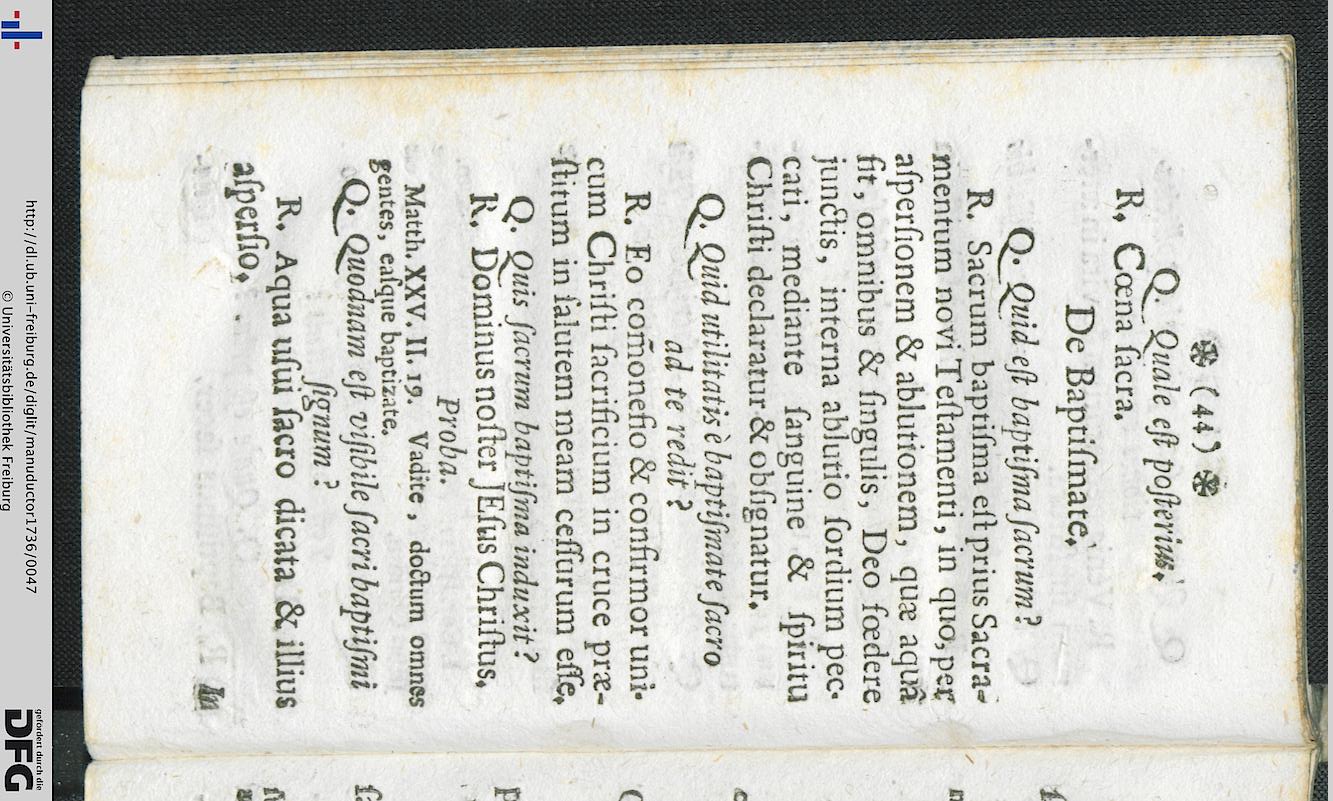 ❋ (44) ❋
Q. Quale eſt poſterius.
R. Cœna ſacra.
De Baptiſmate.
Q. Quid eſt baptiſma ſacrum?
R. Sacrum baptiſma eſt prius Sacra-
mentum novi Teſtamenti, in quo, per
aſperſionem & ablutionem, quæ aquâ
fit, omnibus & ſingulis, Deo fœdere
junctis, interna ablutio ſordium pec-
cati, mediante ſanguine & ſpiritu
Chriſti declaratur & obſignatur.
Q. Quid utilitatis è baptiſmate ſacro
ad te redit?
R. Eo com̃onefio & confirmor uni-
cum Chriſti ſacrificium in cruce præ-
ſtitum in ſalutem meam ceſſurum eſſe.
Q. Quis ſacrum baptiſma induxit?
R. Dominus noſter JEſus Chriſtus.
Proba.
Matth. XXV. II. 19. Vadite, doctum omnes
gentes, eaſque baptizate.
Q. Quodnam eſt viſibile ſacri baptiſmi
ſignum?
R. Aqua uſui ſacro dicata & illius
aſperſio.
http://dl.ub.uni-freiburg.de/diglit/manuductor1736/0047
© Universitätsbibliothek Freiburg
gefördert durch die
DFG